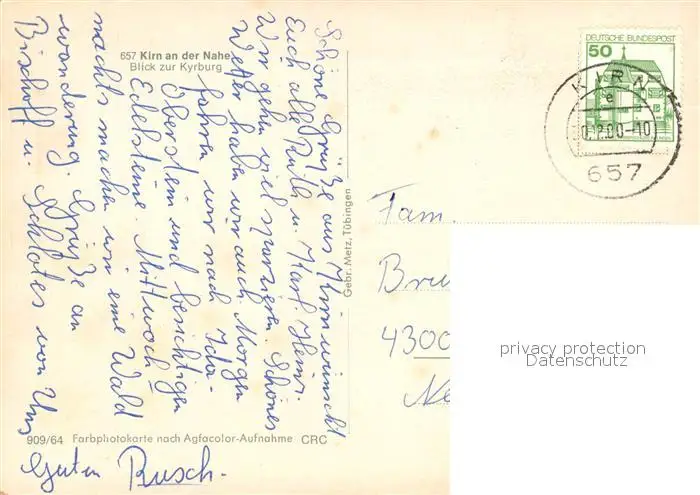 657 Kirn an der Nahe
Blick zur Kyrburg
Schöne Grüße aus Kirn wünscht
Euch alle Ruth u. Karl Heinz.
Wir gehen viel spazieren. Schönes
Wetter haben wir auch. Morgen
fahren wir nach Idar-
Oberstein und besichtigen
Edelsteine. Mittwoch
nachts machen wir eine Wald
wanderung. Grüße an
Bischoff u. Schlotes von Uns
Guten Rusch.
909/64 Farbphotokarte nach Agfacolor-Aufnahme CRC
Gebr. Metz, Tübingen
DEUTSCHE BUNDESPOST
50
KIRN
e
-10
657
Fam.
4300
privacy protection
Datenschutz